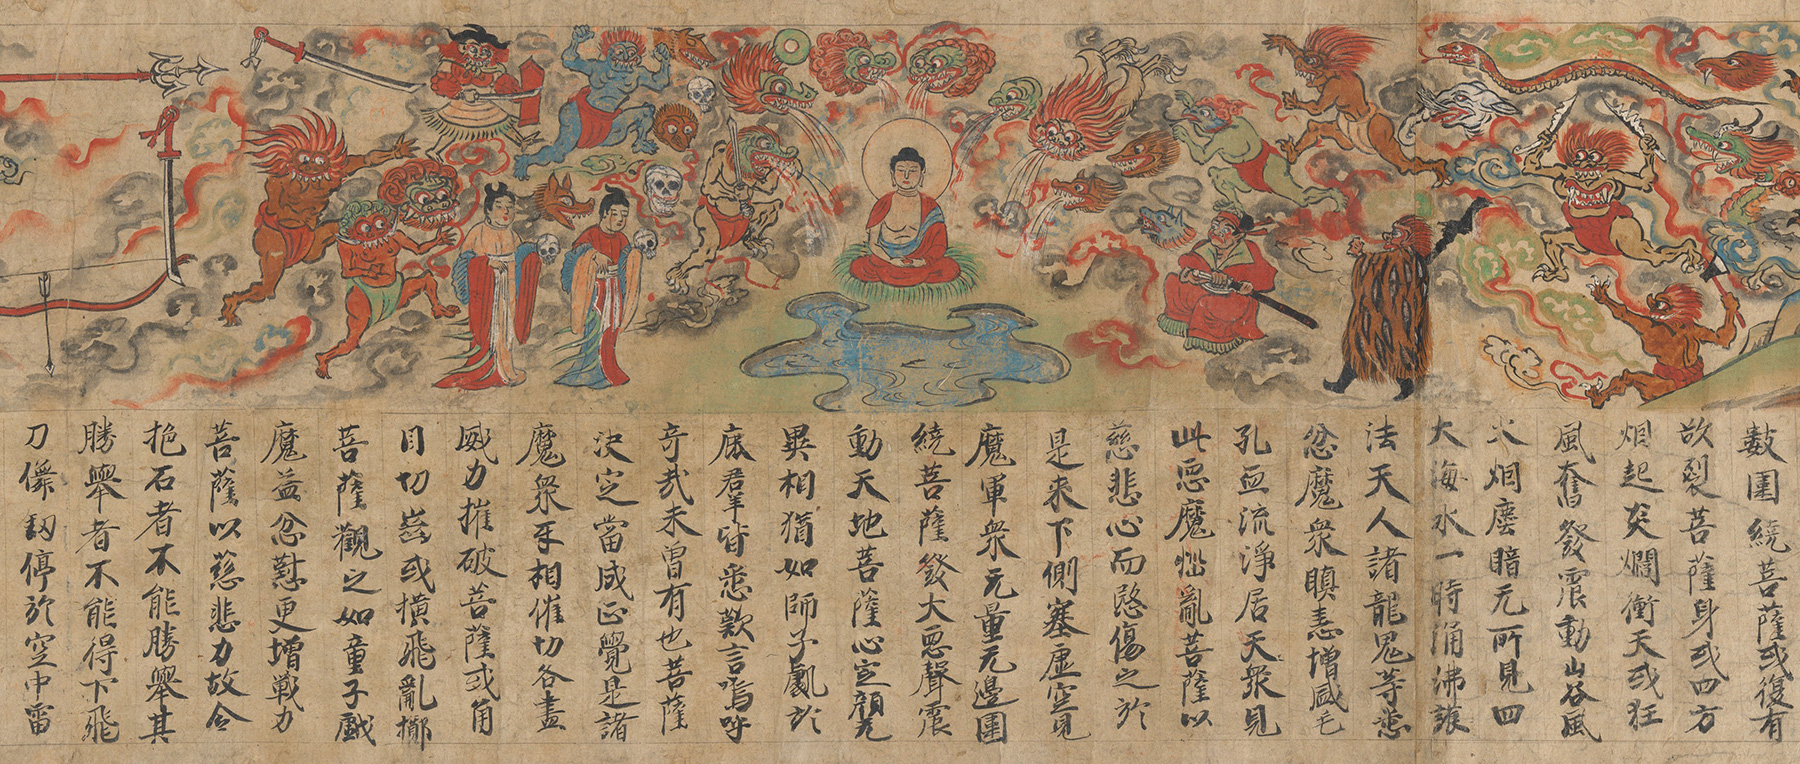 數圍繞菩薩或復有
欲裂菩薩身或四方
烟起炎爛衝天或狂
風奮發震動山谷風
火烟塵暗无所見四
大海水一時涌沸護
法天人諸龍鬼等悉
忿魔衆瞋恚增盛毛
孔血流淨居天衆見
此惡魔惱亂菩薩以
慈悲心而愍傷之於
是来下側塞虛空見
魔軍衆无量无邊圍
繞菩薩發大惡聲震
動天地菩薩心定顏无
異相猶如師子處於
鹿群皆悉歎言嗚呼
奇哉未曾有也菩薩
決定當成正覺是諸
魔衆互相催切各盡
威力摧破菩薩或角
目切齒或橫飛亂擲
菩薩觀之如童子戲
魔益忿懟更增戰力
菩薩以慈悲力故令
抱石者不能勝舉其
勝舉者不能得下飛
刀儛劒停於空中雷